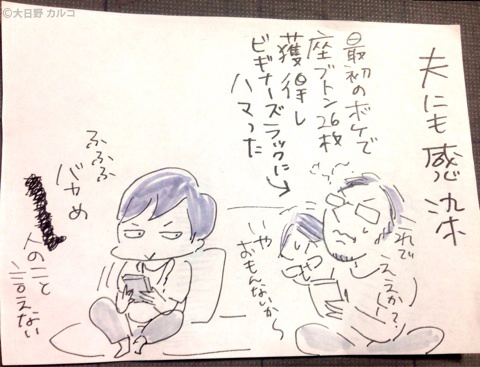 ©大日野 カルコ
夫にも感染
最初のボケで
座ブトン26枚
獲得し
ビギナーズラックに
ハマった
これで
ええか?
いや
おもんないか〜
ふふふ
バカめ
人のこと
言えない